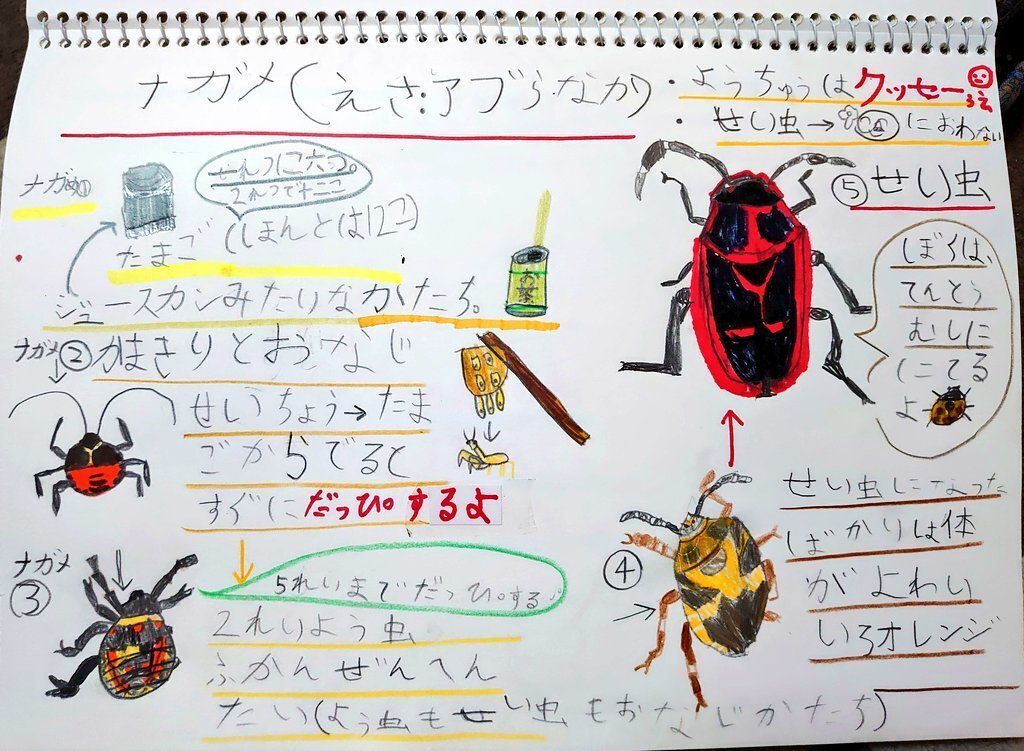 ナガメ(えさ:アブらなか)
・ようちゅうはクッセー
・せい虫→におわない
ナガメ①
せれつに六つ。
2れつで十二こ
たまご(ほんとは12こ)
ジュースカンみたいなかたち。
お茶
ナガメ
②かまきりとおなじ
せいちょう→たま
ごからでると
すぐにだっぴするよ
ナガメ
③
5れいまでだっぴする
2れいよう虫
ふかんぜんへん
たい(よう虫もせい虫もおなじかたち)
④
せい虫になった
ばかりは体
がよわい
いろオレンジ
⑤せい虫
ぼくは、
てんとう
むしに
にてる
よ